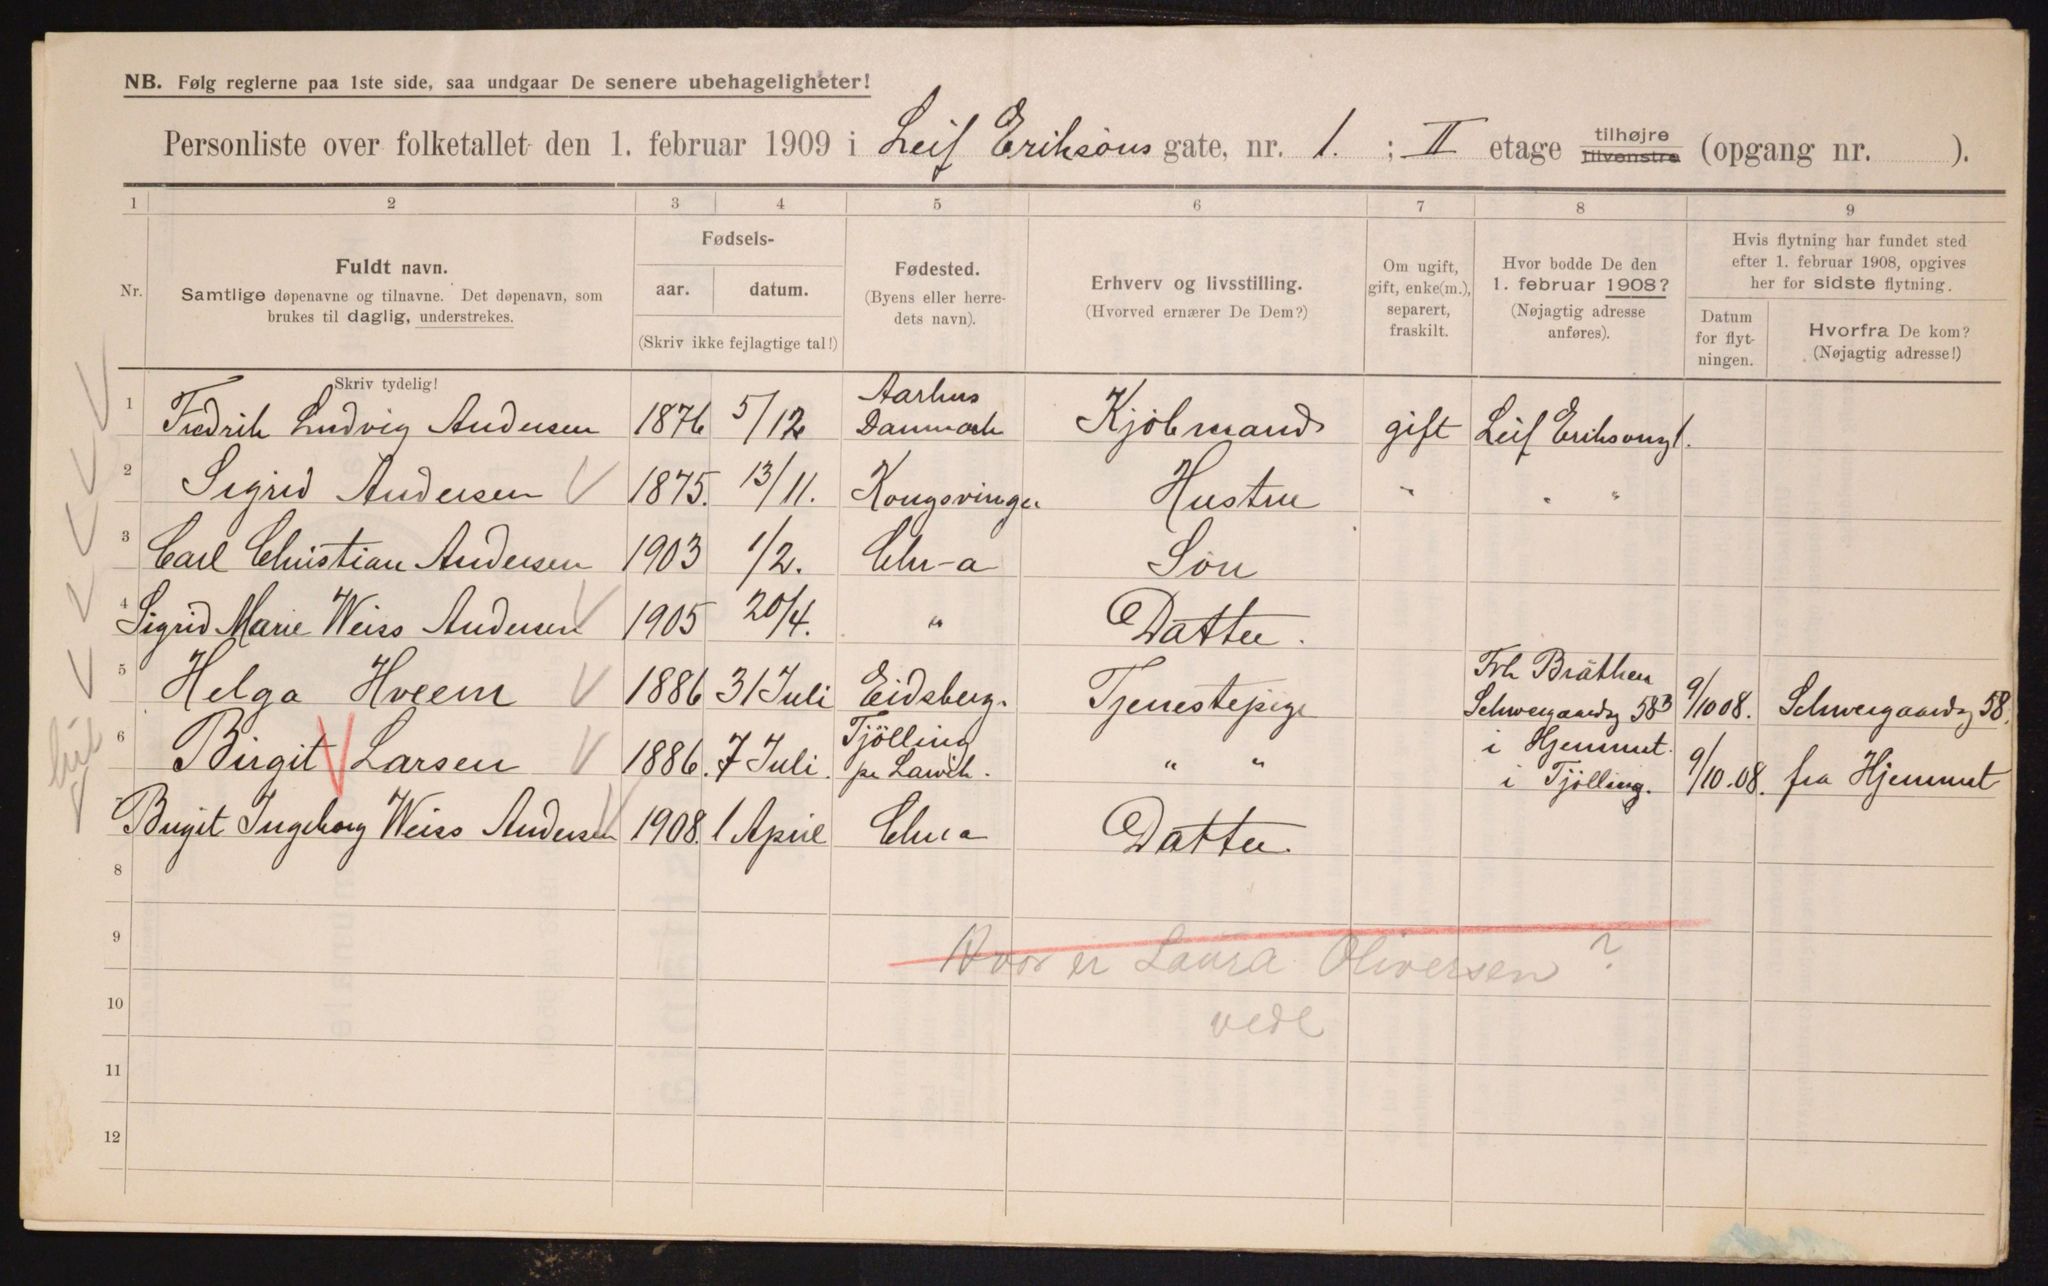 NB. Følg reglerne paa 1ste side, saa undgaar De senere ubehageligheter!
Personliste over folketallet den 1. februar 1909 i Leif Eriksøns gate, nr. 1. ; II etage tilhøjre tilvenstre (opgang nr. ).
1 2 3 4 5 6 7 8 9
Nr.
Fuldt navn.
Samtlige døpenavne og tilnavne. Det døpenavn, som
brukes til daglig, understrekes.
Skriv tydelig!
Fødsels-
aar. datum.
(Skriv ikke fejlagtige tal!)
Fødested.
(Byens eller herre-
dets navn).
Erhverv og livsstilling.
(Hvorved ernærer De Dem?)
Om ugift,
gift, enke(m.),
separert,
fraskilt.
Hvor bodde De den
1. februar 1908?
(Nøjagtig adresse
anføres).
Hvis flytning har fundet sted
efter 1. februar 1908, opgives
her for sidste flytning.
Datum
for flyt-
ningen.
Hvorfra De kom?
(Nøjagtig adresse!)
1 Fredrik Ludvig Andersen 1876 5/12 Aarhus Danmark Kjöbmand gift Leif Eriksonsg 1.
2 Sigrid Andersen 1875. 13/11. Kongsvinger Hustru " " "
3 Carl Christian Andersen 1903 1/2. Chr-a Søn
4 Sigrid Marie Weiss Andersen 1905 20/4. " Datter.
5 Helga Hveem 1886 31 Juli Eidsberg. Tjenestepige Frk Bråthen Schweigaardsg 58³ 9/10 08. Schweigaardsg 58.
6 Birgit Larsen 1886. 7 Juli. Tjölling pr Larvik. " " i Hjemmet i Tjölling. 9/10.08. fra Hjemmet
7 Birgit Ingeborg Weiss Andersen 1908. 1 April Chr a Datter.
8
9
Hvor er Laura Oliversen?
10
11
12